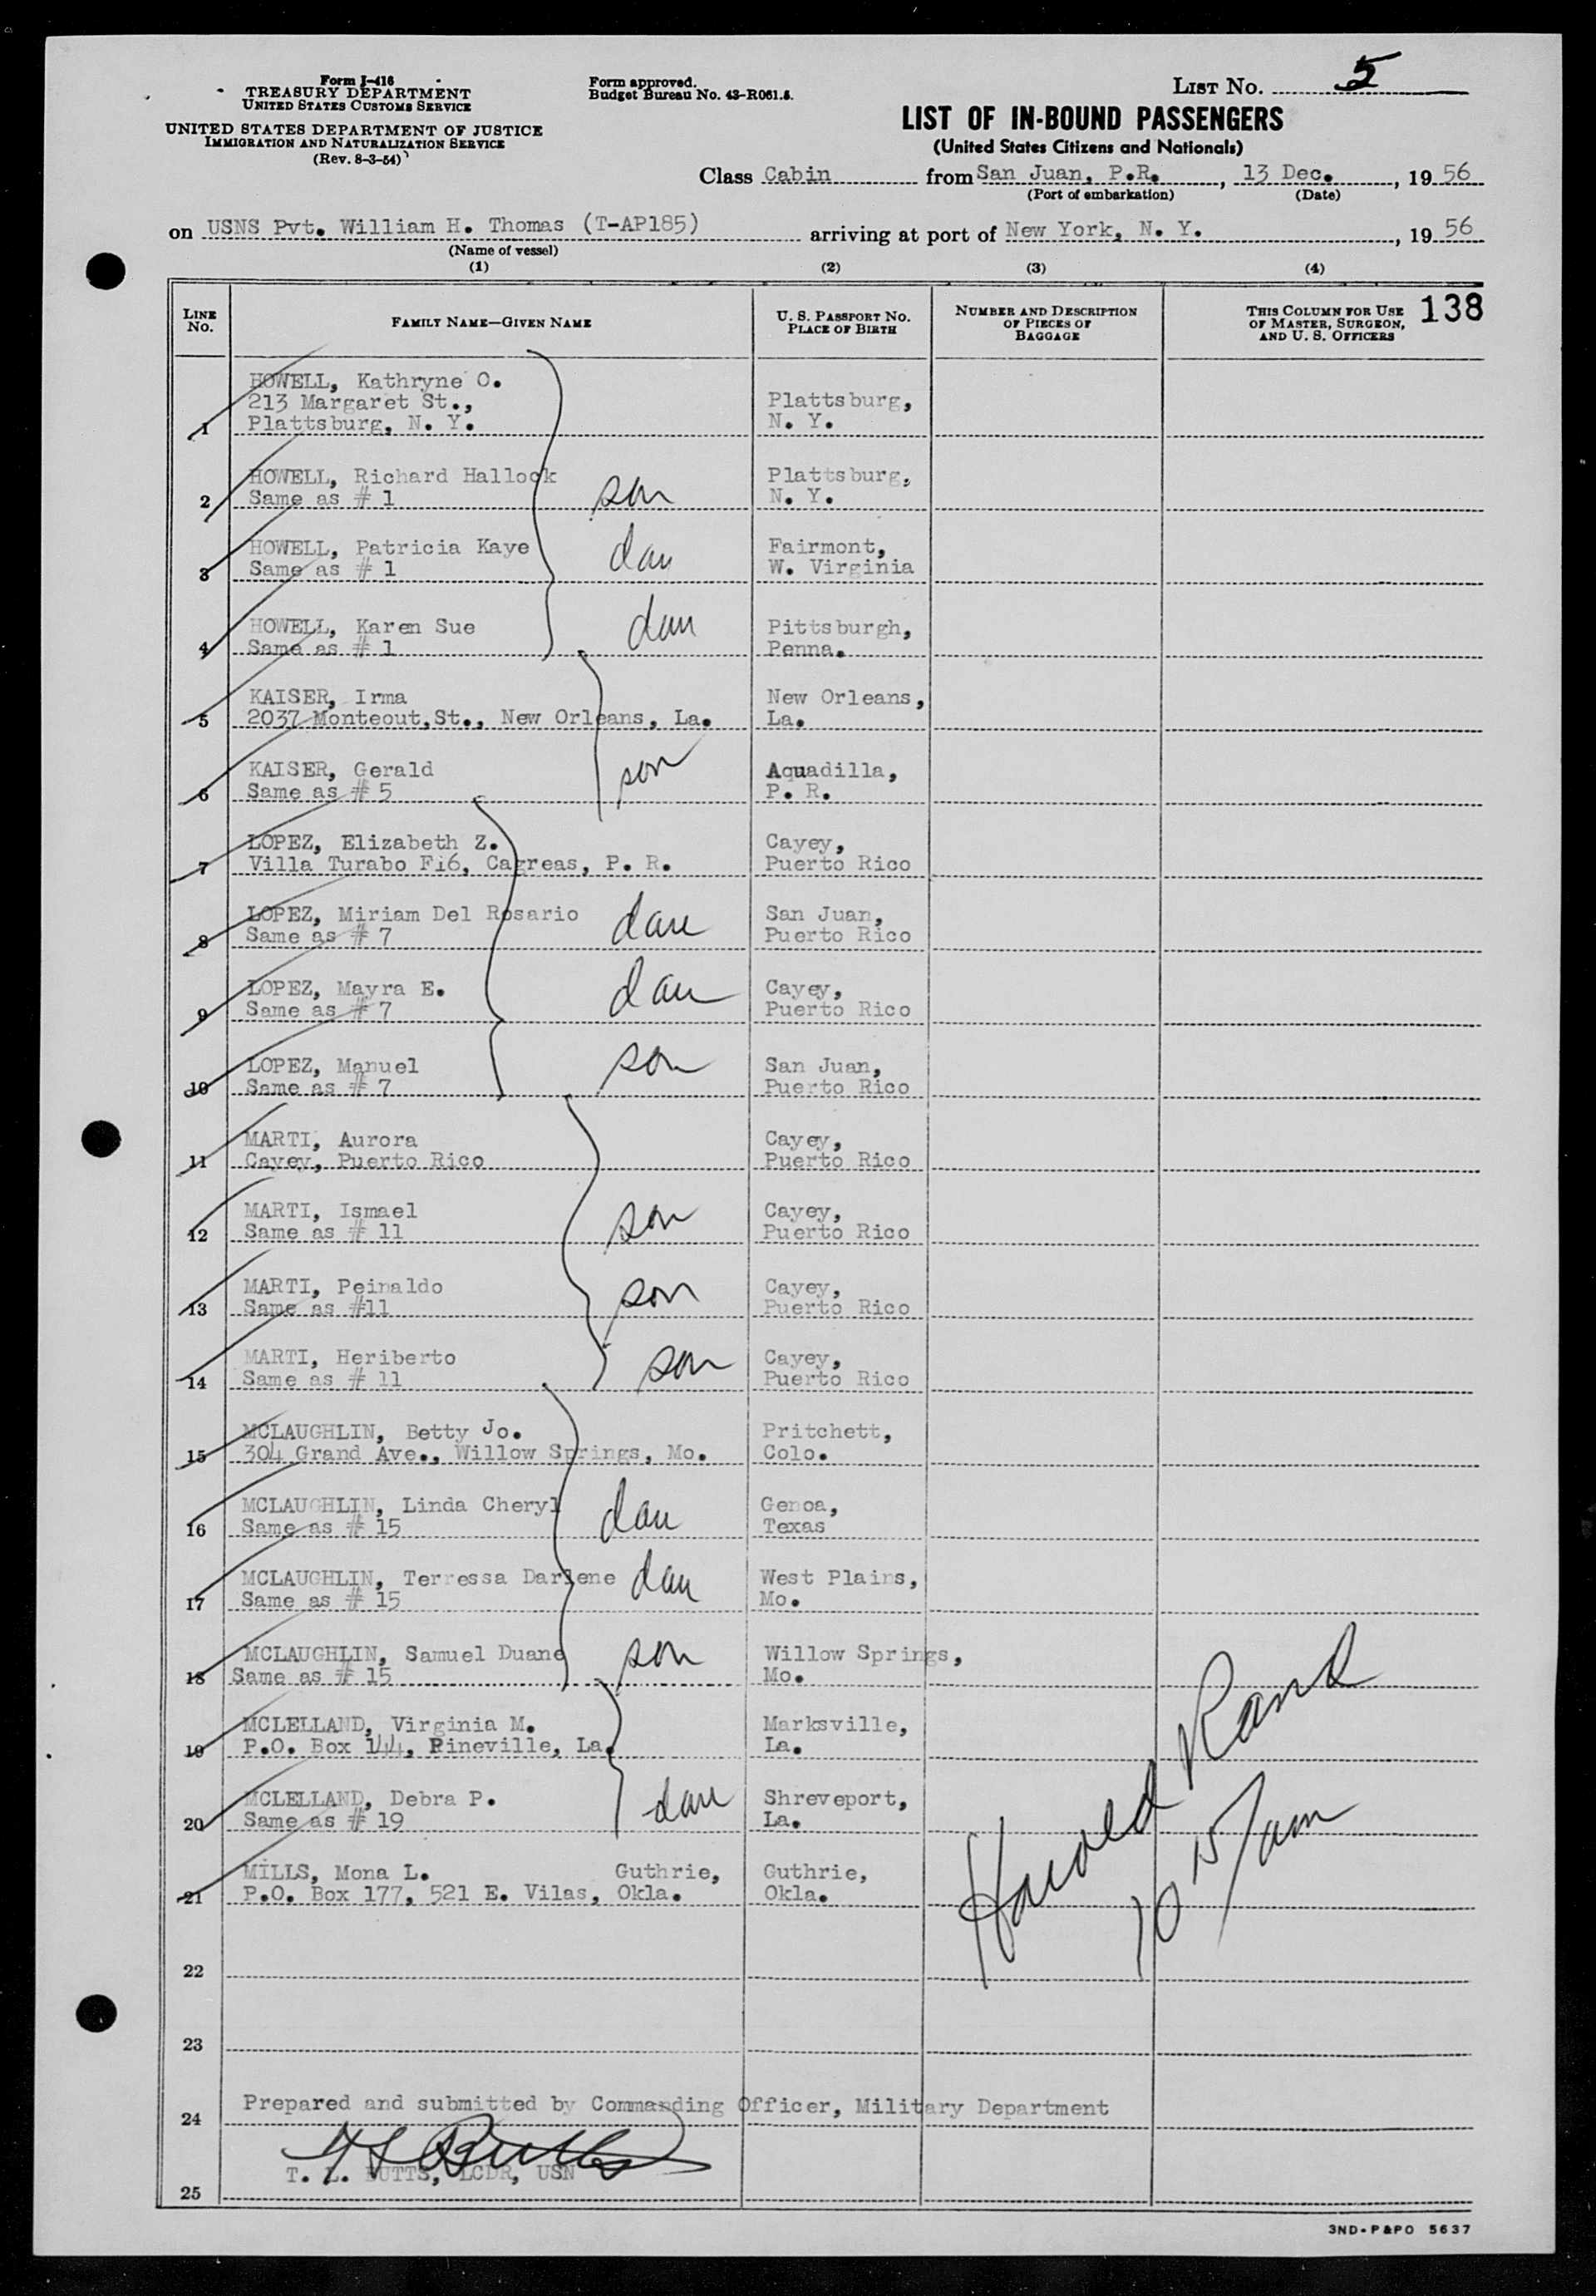 Form I-416
TREASURY DEPARTMENT
UNITED STATES CUSTOMS SERVICE
UNITED STATES DEPARTMENT OF JUSTICE
IMMIGRATION AND NATURALIZATION SERVICE
(Rev. 8-3-54)
Form approved.
Budget Bureau No. 43-R061.5.
LIST No. 5
LIST OF IN-BOUND PASSENGERS
(United States Citizens and Nationals)
Class Cabin from San Juan, P.R., 13 Dec., 1956
(Port of embarkation) (Date)
on USNS Pvt. William H. Thomas (T-AP185) arriving at port of New York, N. Y., 1956
(Name of vessel)
(1) (2) (3) (4)
LINE No. FAMILY NAME—GIVEN NAME U. S. PASSPORT No. PLACE OF BIRTH NUMBER AND DESCRIPTION OF PIECES OF BAGGAGE THIS COLUMN FOR USE OF MASTER, SURGEON, AND U. S. OFFICERS 138
HOWELL, Kathryne C.
213 Margaret St., Plattsburg,
1 Plattsburg, N. Y. N. Y.
HOWELL, Richard Hallock son Plattsburg,
2 Same as # 1 N. Y.
HOWELL, Patricia Kaye dau Fairmont,
3 Same as # 1 W. Virginia
HOWELL, Karen Sue dau Pittsburgh,
4 Same as # 1 Penna.
KAISER, Irma New Orleans,
5 2037 Monteout,St., New Orleans, La. La.
KAISER, Gerald son Aquadilla,
6 Same as # 5 P. R.
LOPEZ, Elizabeth Z. Cayey,
7 Villa Turabo Fi6, Cagreas, P. R. Puerto Rico
LOPEZ, Miriam Del Rosario dau San Juan,
8 Same as # 7 Puerto Rico
LOPEZ, Mayra E. dau Cayey,
9 Same as # 7 Puerto Rico
LOPEZ, Manuel son San Juan,
10 Same as # 7 Puerto Rico
MARTI, Aurora Cayey,
11 Cayey, Puerto Rico Puerto Rico
MARTI, Ismael son Cayey,
12 Same as # 11 Puerto Rico
MARTI, Peinaldo son Cayey,
13 Same as #11 Puerto Rico
MARTI, Heriberto son Cayey,
14 Same as # 11 Puerto Rico
MCLAUGHLIN, Betty Jo. Pritchett,
15 304 Grand Ave., Willow Springs, Mo. Colo.
MCLAUGHLIN, Linda Cheryl dau Genoa,
16 Same as # 15 Texas
MCLAUGHLIN, Terressa Darlene dau West Plains,
17 Same as # 15 Mo.
MCLAUGHLIN, Samuel Duane son Willow Springs,
18 Same as # 15 Mo.
MCLELLAND, Virginia M. Marksville,
19 P.O. Box 144, Pineville, La. La.
MCLELLAND, Debra P. dau Shreveport,
20 Same as # 19 La.
MILLS, Mona L. Guthrie, Guthrie,
21 P.O. Box 177, 521 E. Vilas, Okla. Okla.
Harold Rand
10 15/am
22
23
Prepared and submitted by Commanding Officer, Military Department
24
T L Butts
T. L. BUTTS, LCDR, USN
25
3ND-P&PO 5637